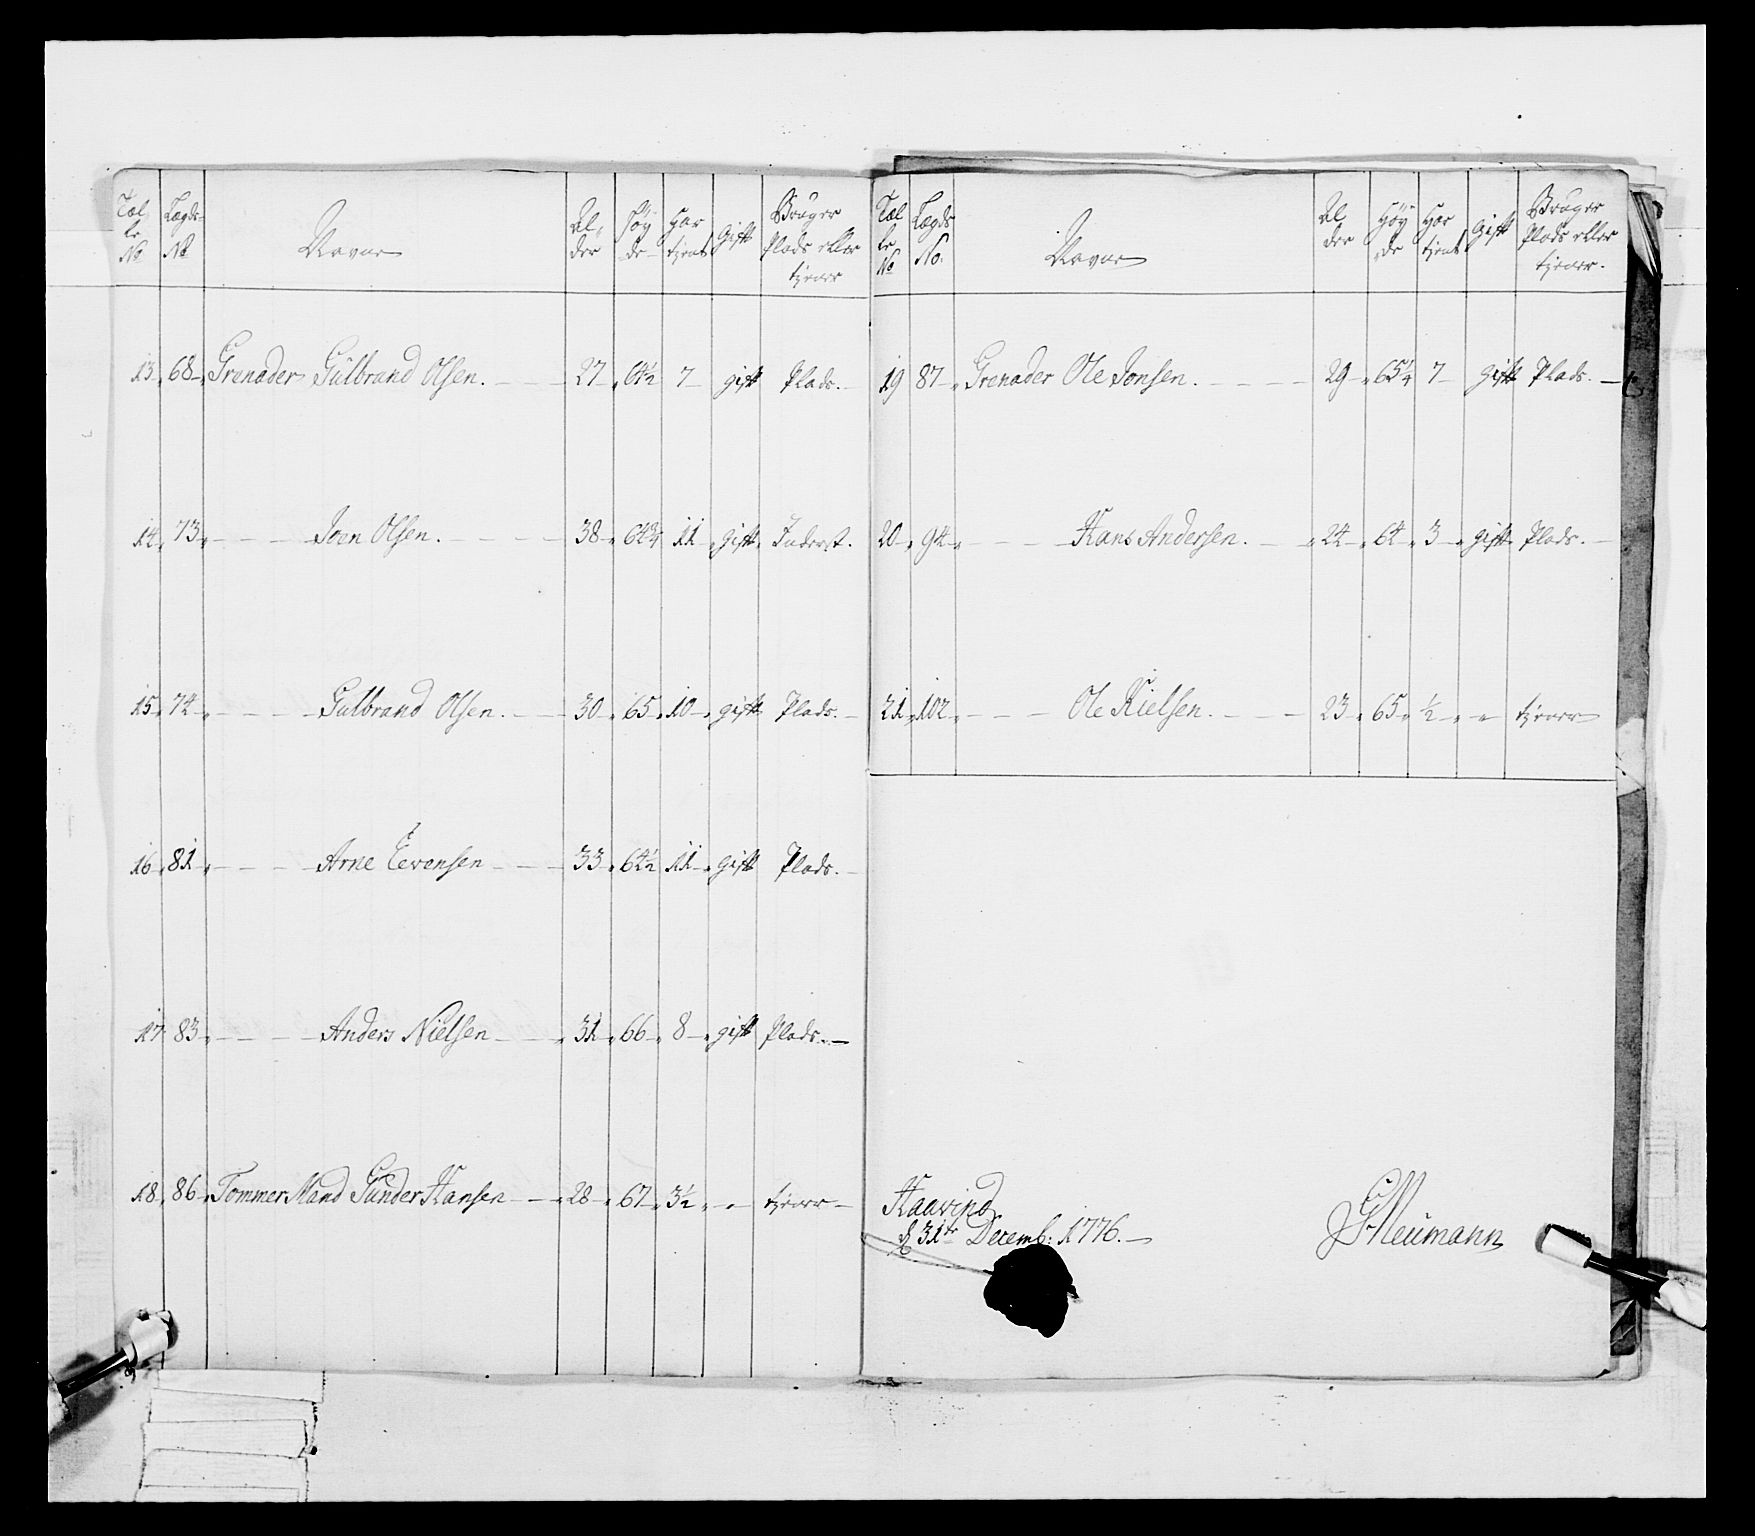 Tal
le
No
Lægds
No
Navne
Al,
der
Høy
de
Har
tjent
Gift
Bruger
Plads eller
tjener
13, 68 Grenader Gulbrand Olsen. 27, 64½ 7 gift Plads.
14, 73, Joen Olsen. 38, 64¾ 11, gift, Inderst.
15, 74, Gulbrand Olsen. 30, 65, 10, gift Plads.
16, 81, Arne Evensen 33, 64½ 11, gift Plads.
17 83, Anders Nielsen 31, 66, 8, gift Plads.
18, 86, Tommer Mand Gunder Hansen 28, 67, 3½ „ „ tjener
Tal
le
No
Lægds
No.
Navne
Al,
der
Høy
de
Har
tjent
Gift
Bruger
Plads eller
tjener.
19 87, Grenader Ole Jonsen. 29, 65¼ 7 gift Plads.
20, 94, Hans Andersen. 24, 64, 3, gift Plads.
21, 102, Ole Nielsen. 23, 65, ½ „ „ tjener
Haavind
d 31te Decemb: 1776.
Neümann